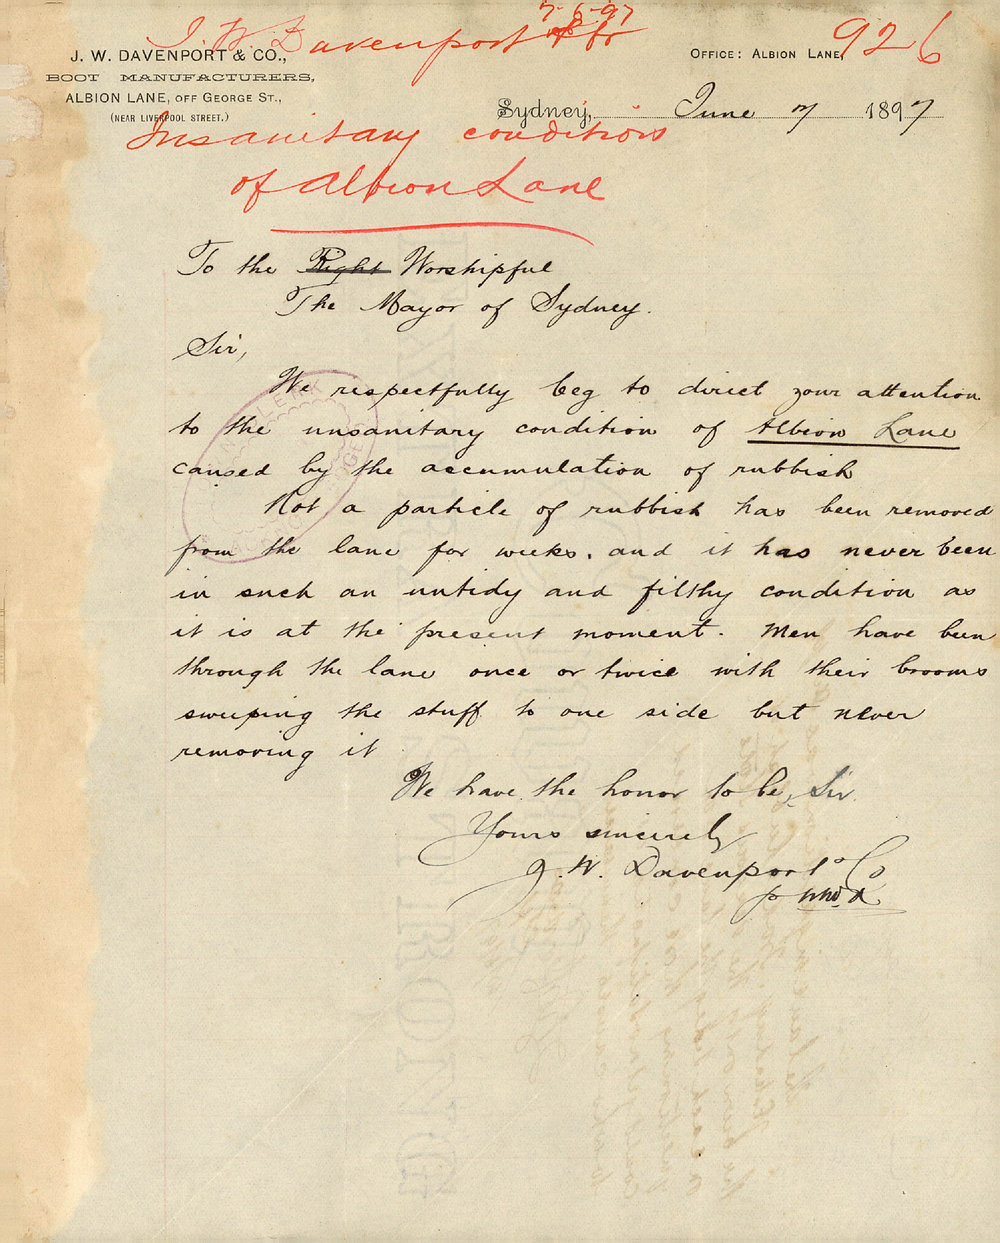 7-6-97
J. W. Davenport & Co
926
J. W. DAVENPORT & CO.,
BOOT MANUFACTURERS,
ALBION LANE, OFF GEORGE ST.,
(NEAR LIVERPOOL STREET.)
OFFICE: ALBION LANE,
Sydney, June 7 1897
Insanitary conditions
of Albion Lane
To the Right Worshipful
The Mayor of Sydney.
Sir,
We respectfully beg to direct your attention
to the unsanitary condition of Albion Lane
caused by the accumulation of rubbish
Not a particle of rubbish has been removed
from the lane for weeks. and it has never been
in such an untidy and filthy condition as
it is at the present moment. Men have been
through the lane once or twice with their brooms
sweeping the stuff to one side but never
removing it
We have the honor to be, Sir
Yours sincerely
J. W. Davenport & Co